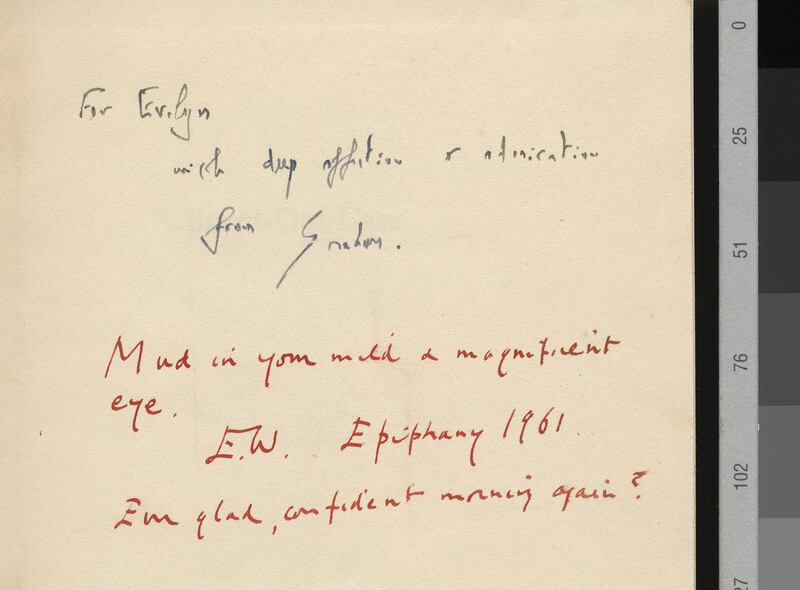 For Evelyn
with deep affection & admiration
from Graham.
Mud in your mild & magnificent
eye.
E.W. Epiphany 1961
Ever glad, confident morning again?
0
25
51
76
102
27